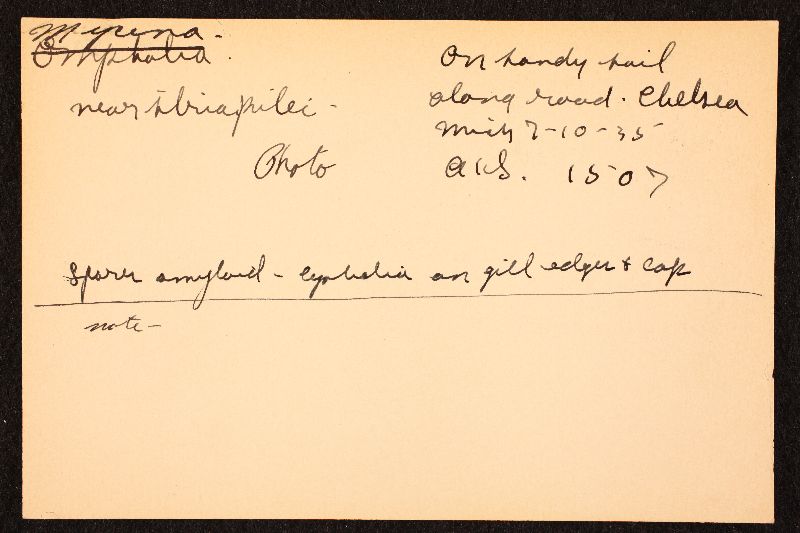 Mycena.
Omphalia.
near striaepilei -
Photo
On sandy soil
along road. Chelsea
Mich 7-10-35
AHS. 1507
Spores amyloid - cystidia on gill edges & cap
note -